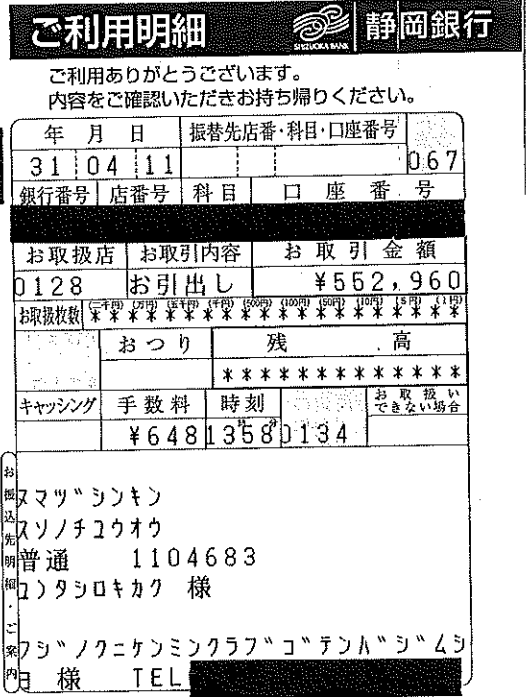 ご利用明細 SHIZUOKA BANK 静岡銀行
ご利用ありがとうございます。
内容をご確認いただきお持ち帰りください。
年 月 日 振替先店番・科目・口座番号
31 04 11 067
銀行番号 店番号 科目 口座番号
お取扱店 お取引内容 お取引金額
0128 お引出し ¥552,960
お取扱枚数 (二千円) (万円) (五千円) (千円) (500円) (100円) (50円) (10円) (5円) (1円)
* * * * * * * * * * * * * * * * * * * *
おつり 残高
* * * * * * * * * * * * *
キャッシング 手数料 時刻 お取扱いできない場合
¥648 1358 0134
お振込先明細・ご案内
ヌマヅシンキン
スソノチユウオウ
普通 1104683
ユ)タシロキカク 様
フジノクニケンミンクラブゴテンバジムシ
ヨ 様 TEL